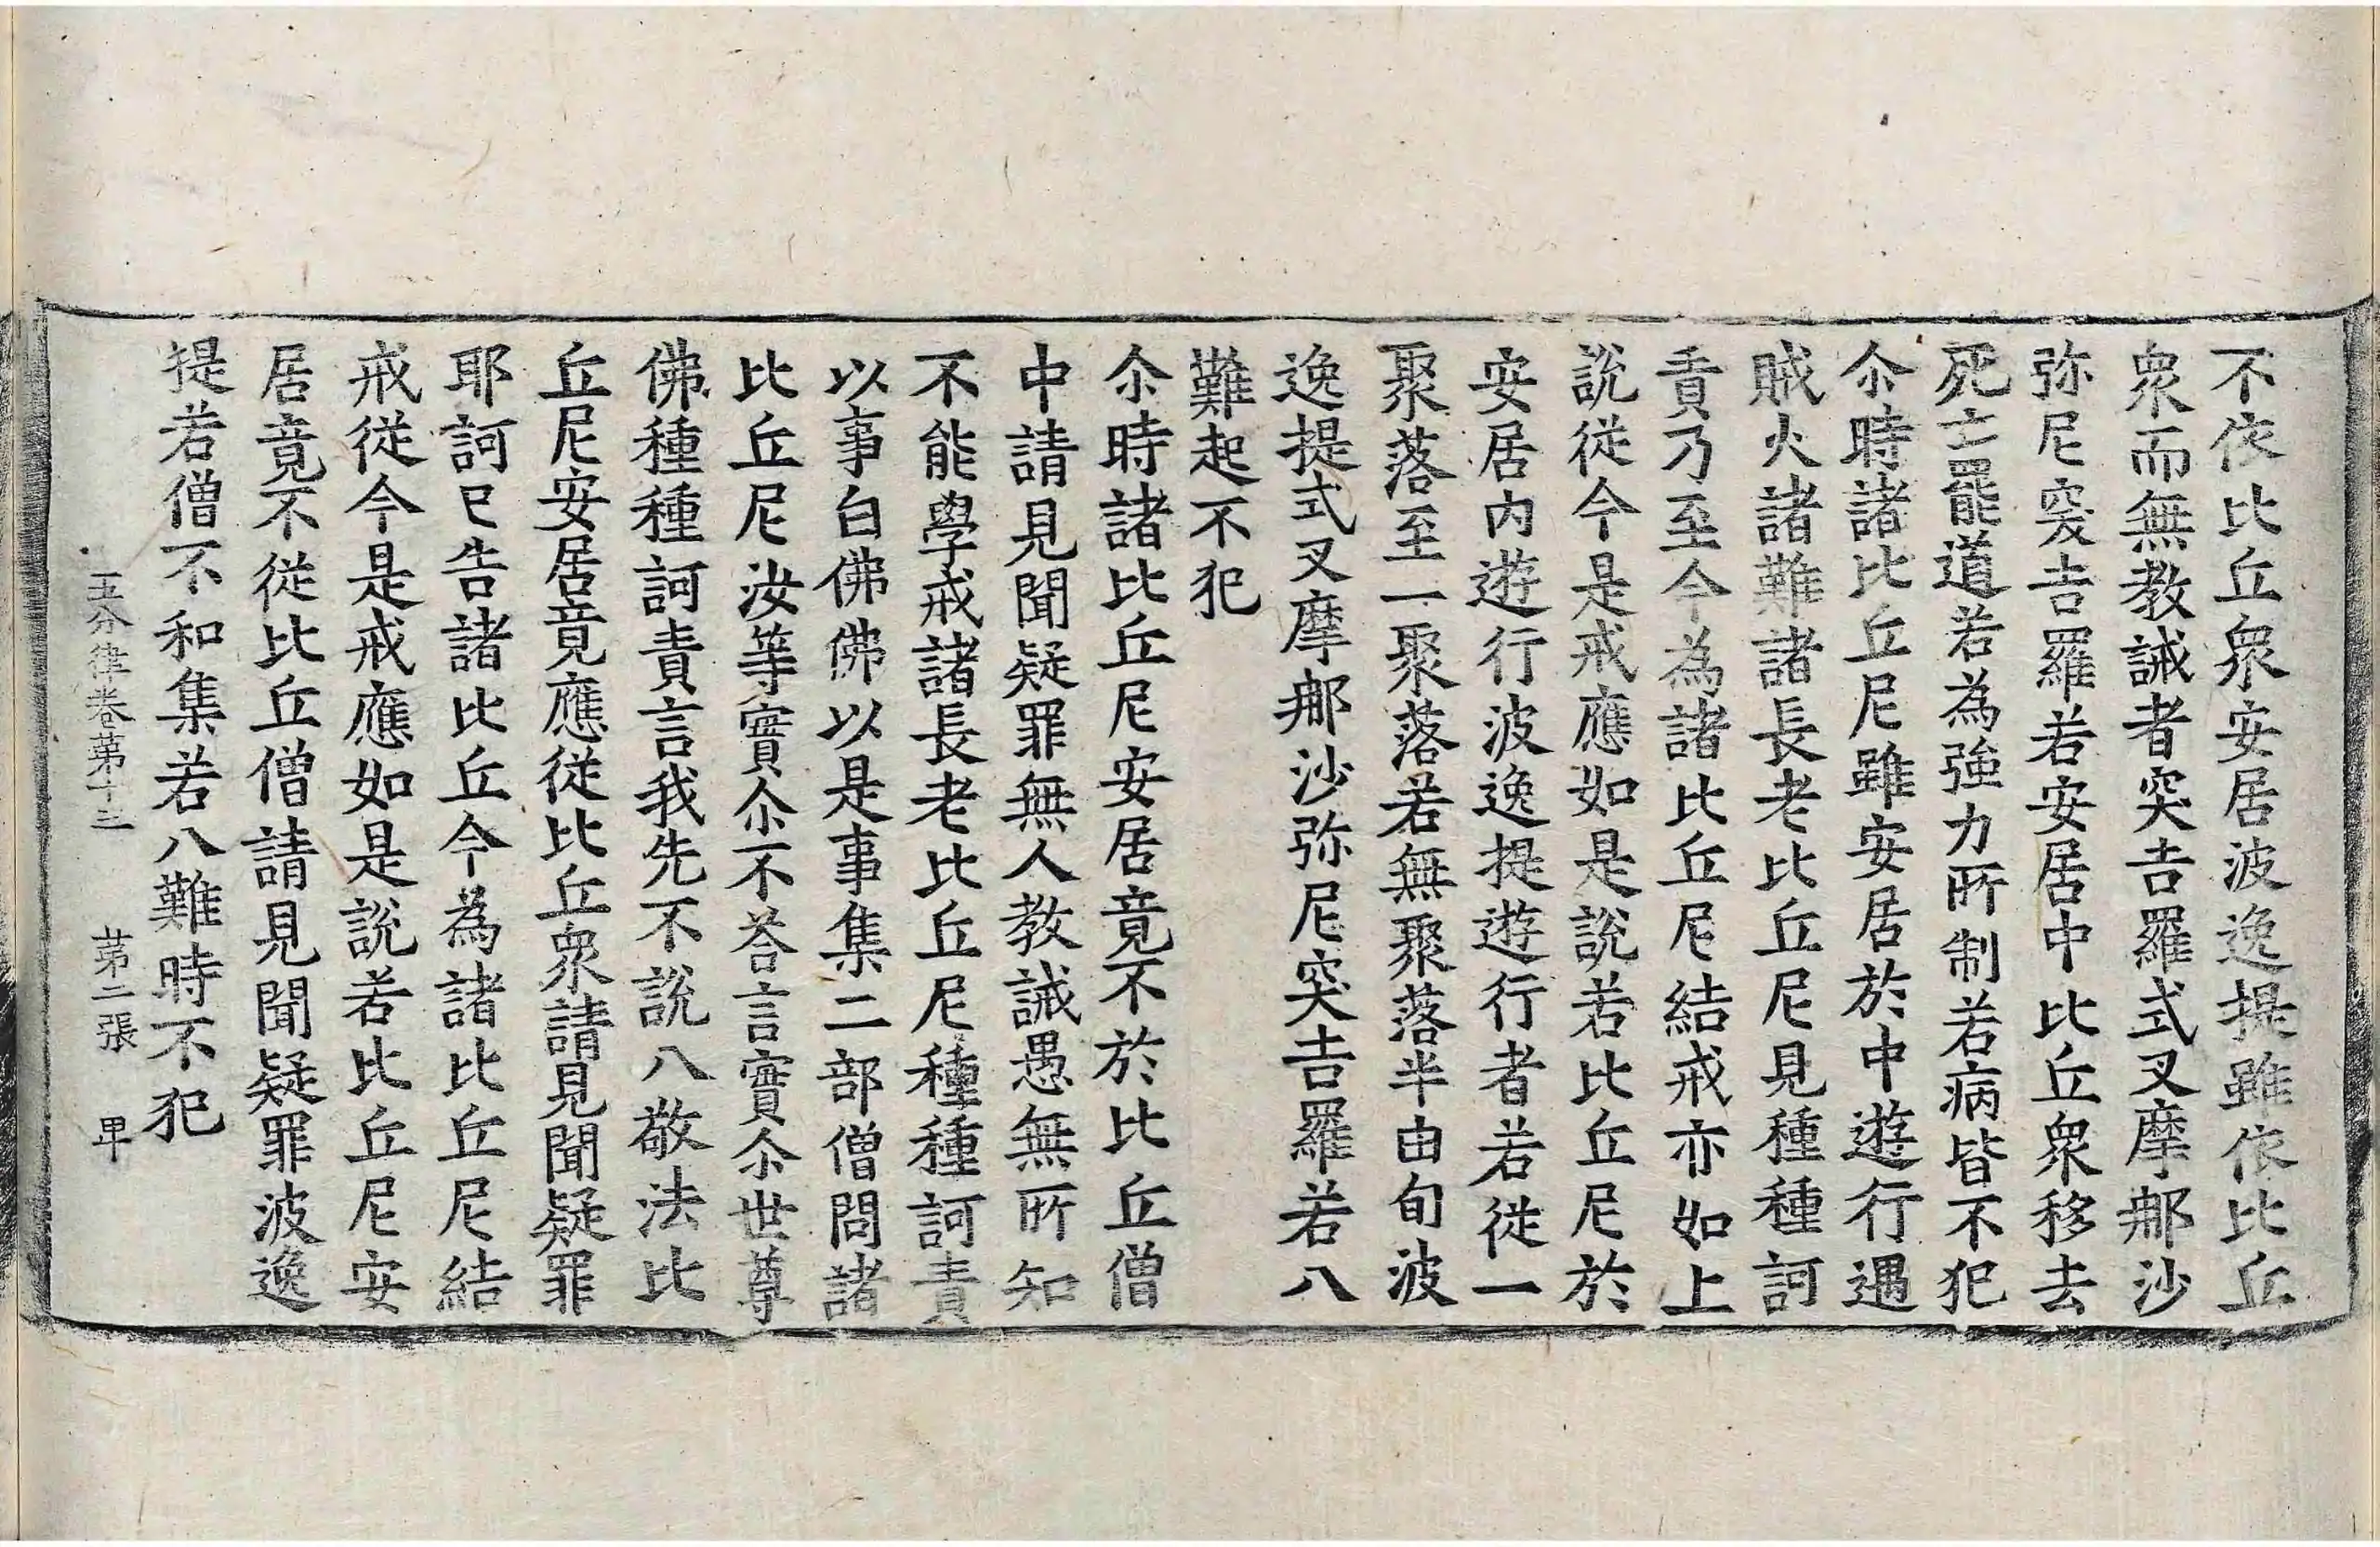 不依比丘衆安居波逸提雖依比丘
衆而無教誡者突吉羅式叉摩𨙻沙
弥尼突吉羅若安居中比丘衆移去
死亡罷道若為強力所制若病皆不犯
尒時諸比丘尼雖安居於中遊行遇
賊火諸難諸長老比丘尼見種種訶
責乃至今為諸比丘尼結戒亦如上
說從今是戒應如是說若比丘尼於
安居內遊行波逸提遊行者若從一
聚落至一聚落若無聚落半由旬波
逸提式叉摩𨙻沙弥尼突吉羅若八
難起不犯
尒時諸比丘尼安居竟不於比丘僧
中請見聞疑罪無人教誡愚無所知
不能學戒諸長老比丘尼種種訶責
以事白佛佛以是事集二部僧問諸
比丘尼汝等實尒不荅言實尒世尊
佛種種訶責言我先不說八敬法比
丘尼安居竟應從比丘衆請見聞疑罪
耶訶已告諸比丘今為諸比丘尼結
戒從今是戒應如是說若比丘尼安
居竟不從比丘僧請見聞疑罪波逸
提若僧不和集若八難時不犯
五分律卷第十三 第二張 甲